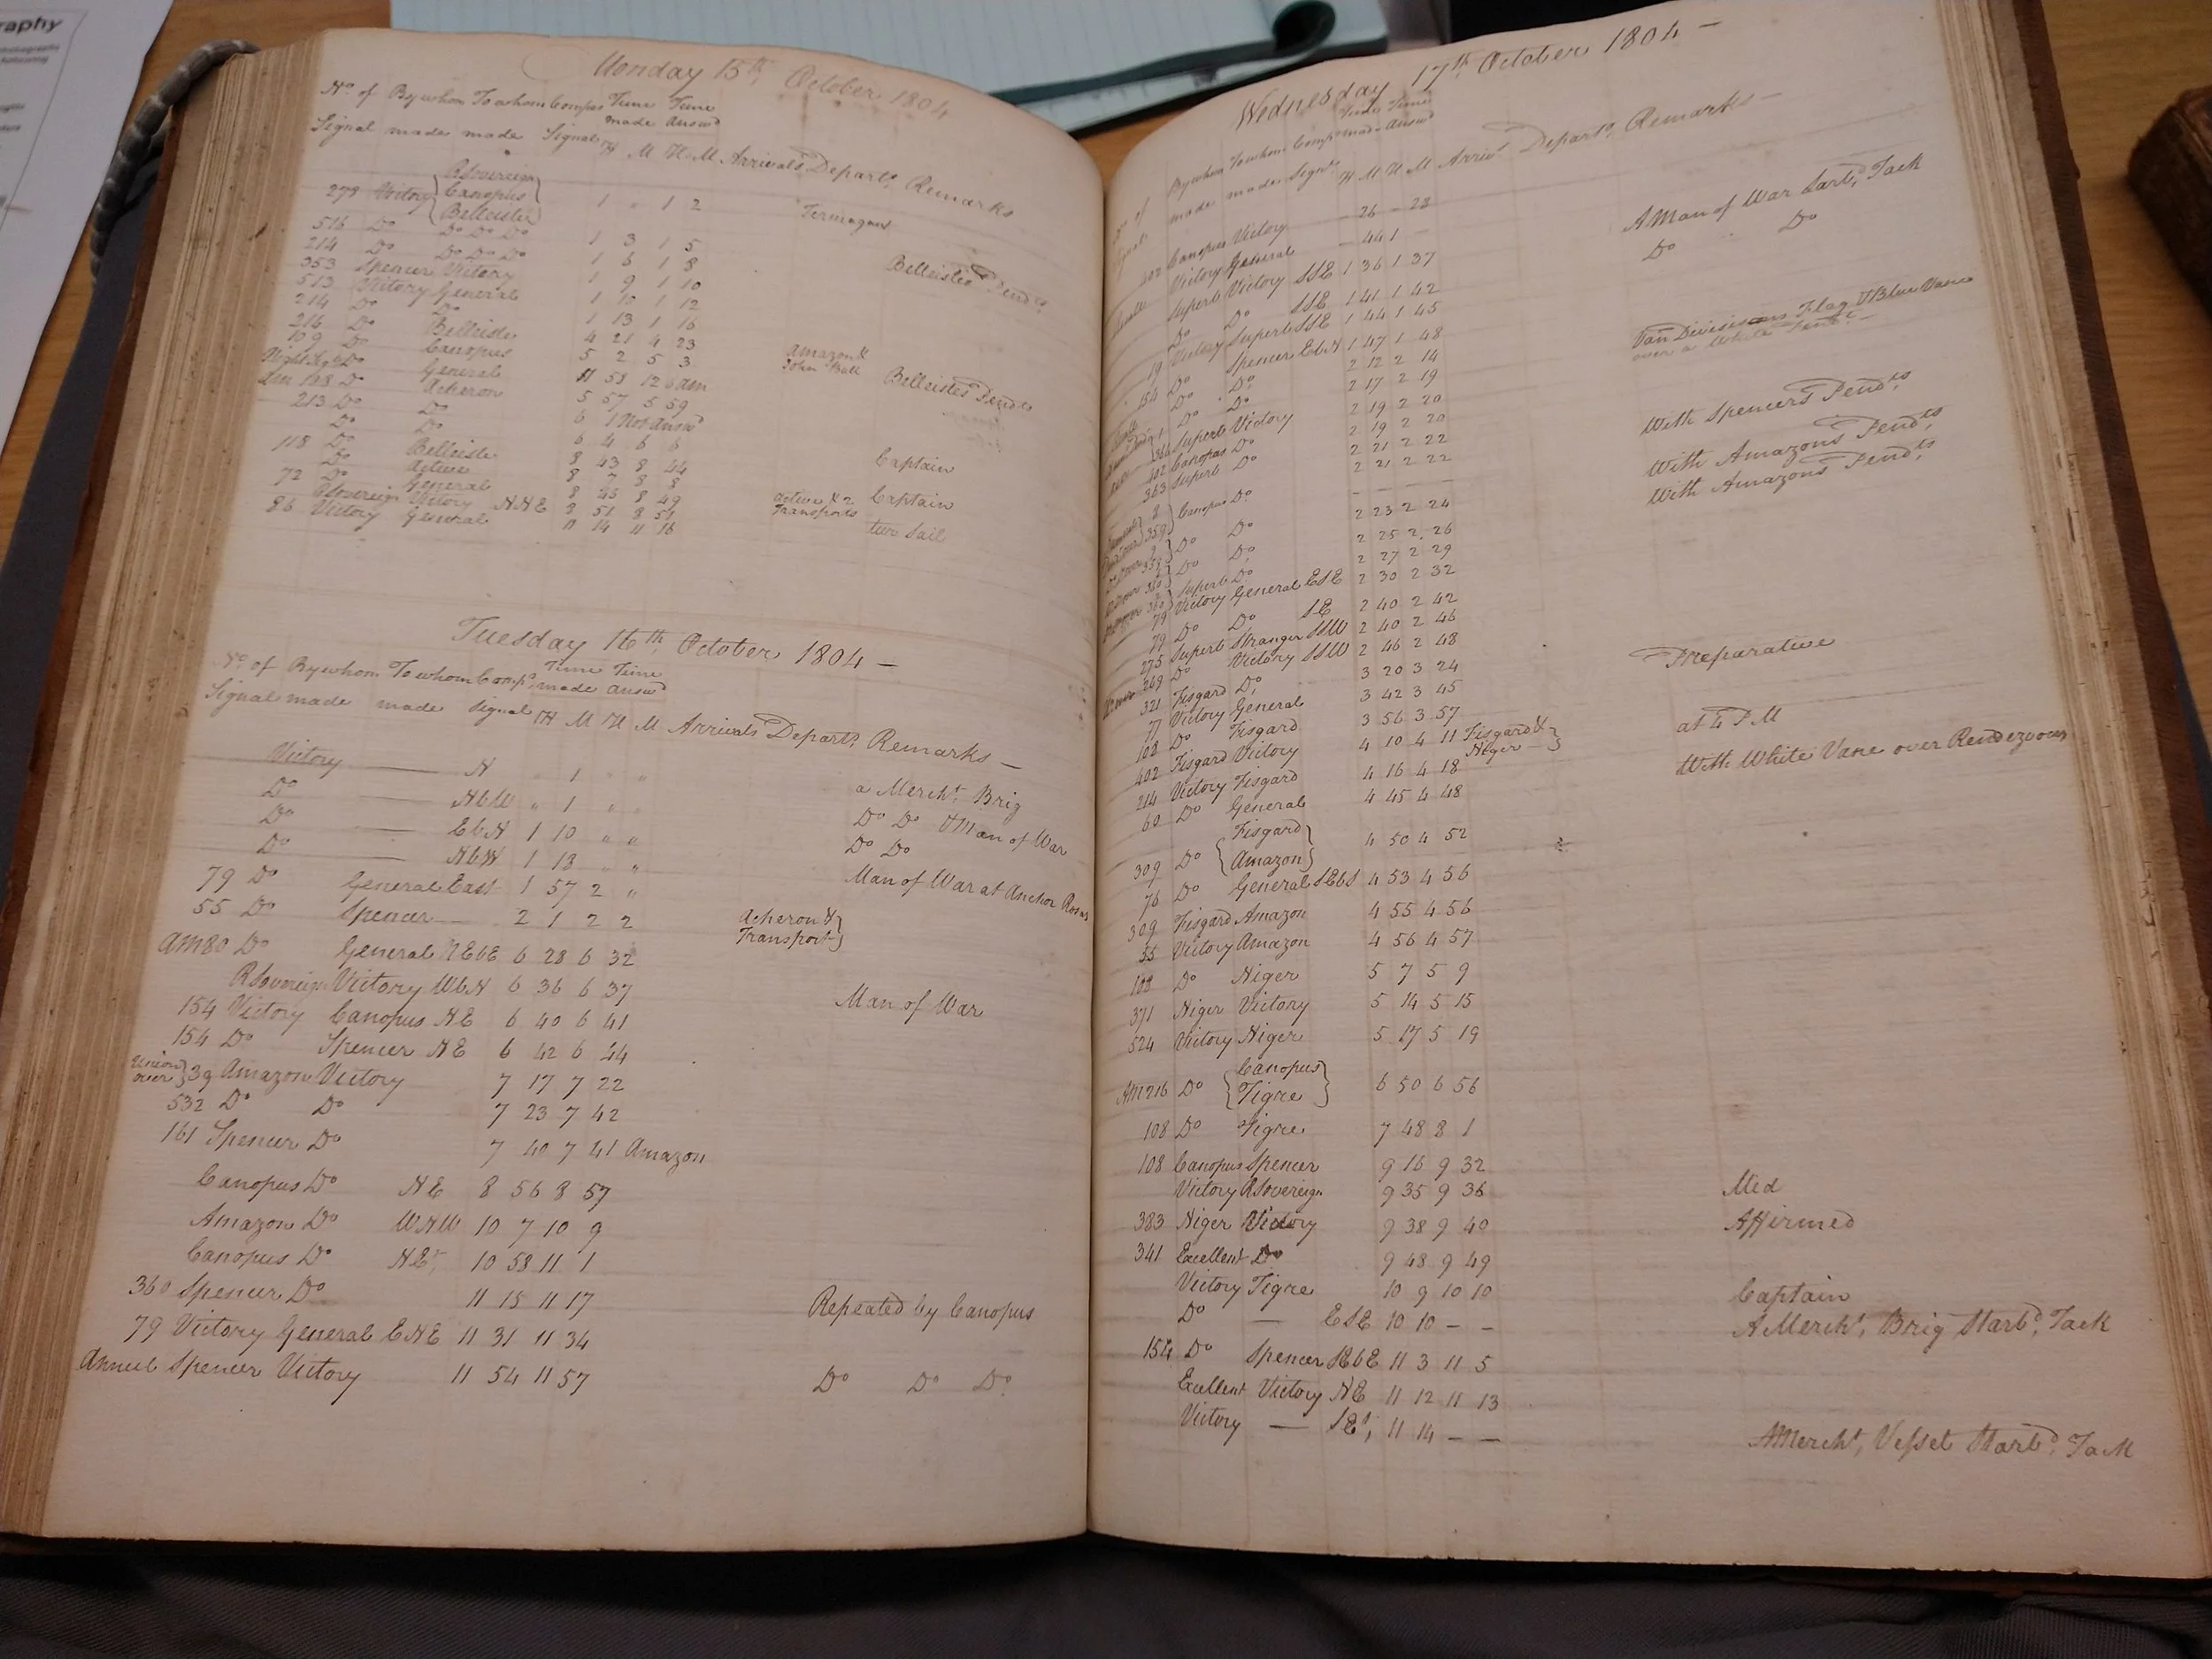 raphy
Monday 15th October 1804
No. of By whom To whom Compss Time Time
made Answd
Signal made made Signal H M H M Arrivals Departs Remarks
RSovereign
278 Victory Canopus 1 " 1 2 Termagant
Belleisle
516 Do Do Do Do 1 3 1 5
214 Do Do Do Do 1 6 1 8 Belleisles Pendts
353 Spencer Victory 1 9 1 10
513 Victory General 1 10 1 12
214 Do Do 1 13 1 16
214 Do Belleisle 4 21 4 23
109 Do Canopus 5 2 5 3 Amazon &
John Bull
Do General 11 53 12 6 am Belleisles Pendts
Do Acheron 5 57 5 59
213 Do Do 6 1 Not Answd
Do Do 6 4 6 6
118 Do Belleisle 8 43 8 44 Captain
Do Active 8 7 8 8
72 Do General 8 45 8 49 Captain
RSovereign Victory NNE 8 51 8 51 Active & 2
Transports two Sail
86 Victory General 11 14 11 16
Tuesday 16th October 1804 —
No. of By whom To whom Comps Time Time
made Answd
Signal made made Signal H M H M Arrivals Departs Remarks —
Victory — N " 1 " " a Mercht. Brig
Do — NbW " 1 " " Do Do & Man of War
Do — EbN 1 10 " " Do Do
Do — NbW 1 13 " " Man of War at Anchor Rosas
79 Do General East 1 57 2 "
55 Do Spencer — 2 1 2 2 Acheron &
Transport
AM 80 Do General NEbE 6 28 6 32
RSovereign Victory WbN 6 36 6 37 Man of War
154 Victory Canopus NE 6 40 6 41
154 Do Spencer NE 6 42 6 44
Union over 39 Amazon Victory 7 17 7 22
532 Do Do 7 23 7 42
161 Spencer Do 7 40 7 41 Amazon
Canopus Do NE 8 56 8 57
Amazon Do WNW 10 7 10 9
Canopus Do NE 10 58 11 1
360 Spencer Do 11 15 11 17 Repeated by Canopus
79 Victory General ENE 11 31 11 34
Annul Spencer Victory 11 54 11 57 Do Do Do
Wednesday 17th October 1804 —
Time Time
By whom To whom Comps made Answd
made Signl H M H M Arrivs Departs Remarks —
402 Canopus Victory – 26 – 28 A Man of War Larbd Tack
Victory General – 44 1 – Do Do
Superb Victory SSE 1 36 1 37
Do Do SSE 1 41 1 42
19 Victory Superb SSE 1 44 1 45 Van Divisions Flag & Blue Vane
over a White Pendt —
154 Do Spencer EbN 1 47 1 48
Do Do 2 12 2 14
Do Do 2 17 2 19 With Spencers Pendts
Superb Victory 2 19 2 20
402 Canopus Do 2 19 2 20 With Amazons Pendts
363 Superb Do 2 21 2 22 With Amazons Pendts
2 21 2 22
Canopus Do – – – –
Do Do 2 23 2 24
Do Do 2 25 2 26
Superb Do 2 27 2 29
79 Victory General ESE 2 30 2 32
79 Do Do SE 2 40 2 42
275 Superb Stranger SSW 2 40 2 46
269 Do Victory SSW 2 46 2 48
321 Fisgard Do 3 20 3 24
77 Victory General 3 42 3 45 Preparative
102 Do Fisgard 3 56 3 57
402 Fisgard Victory 4 10 4 11 Fisgard &
Niger — at 4 PM
214 Victory Fisgard 4 16 4 18
60 Do General 4 45 4 48 With White Vane over Rendezvous
309 Do Fisgard 4 50 4 52
Amazon
76 Do General SEbS 4 53 4 56
309 Fisgard Amazon 4 55 4 56
55 Victory Amazon 4 56 4 57
108 Do Niger 5 7 5 9
371 Niger Victory 5 14 5 15
524 Victory Niger 5 17 5 19
AM 216 Do Canopus 6 50 6 56
Tigre
108 Do Tigre 7 48 8 1
108 Canopus Spencer 9 16 9 32
Victory RSovereign 9 35 9 36 Med
383 Niger Victory 9 38 9 40 Affirmed
341 Excellent Do 9 48 9 49
Victory Tigre 10 9 10 10 Captain
Do — ESE 10 10 – – A Mercht, Brig Starbd, Tack
154 Do Spencer SEbE 11 3 11 5
Excellent Victory NE 11 12 11 13
Victory — SEt, 11 14 – – A Mercht, Vessel Starbd, Tack